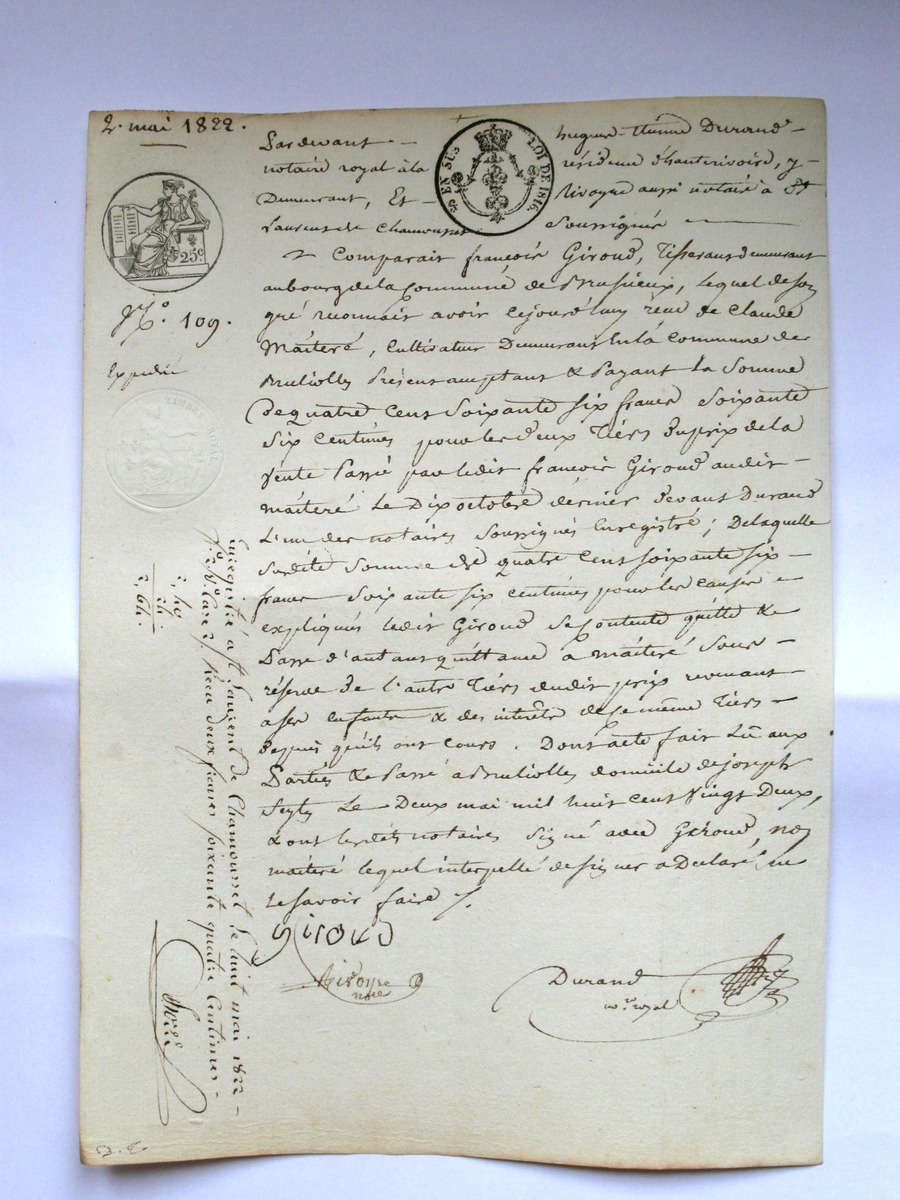 2. mai 1822.
Pardevant hugues-étienne Durand
notaire royal à la résidence d'hauterivoire, y
Demeurant, Et Rivoyre aussi notaire à St
Laurent de Chamousset Soussignés
EN SUS LOI DE 1816.
25c
Comparait françois Giroud, Tisserant demeurant
au bourg de la Commune de Brusieux, lequel de son
gré reconnait avoir cejourd'huy reçu de Claude
Maiteré, Cultivateur Demeurant en la Commune de
Brullolles Présent acceptant & Payant la Somme
De quatre Cent Soixante Six francs Soixante
Six Centimes pour les Deux Tiers du prix de la
Vente Passée par ledit françois Giroud audit
Maiteré Le Dix octobre dernier Devant Durand
L'un des notaires Soussignés Enregistré ; De laquelle
Susdite Somme de quatre Cent soixante six
francs Soixante six Centimes pour les causes
expliqués ledit Giroud Se Contente quitte &
Passe d'autant quittance à maiteré Sous
réserve de l'autre Tiers dudit prix revenant
à ses enfants & des intérêts de ce même Tiers
Depuis qu'ils ont Cours. Dont acte fait Lu aux
Parties & Passé à Brullolles domicile de joseph
Le Deux mai mil huit cent Vingt Deux,
& ont lesdits notaires Signé avec Giroud, non
maiteré lequel interpellé de signer a Déclaré ne
Le Savoir faire
Giroud
Rivoyre
nore
Durand
nre royal
N.o 109.
Expedié
TIMBRE ROYAL
Enregistré à St Laurent de Chamousset le huit mai 1822
Case Reçu deux francs soixante quatre Centimes
2, 40
24
2, 64.
D. E.